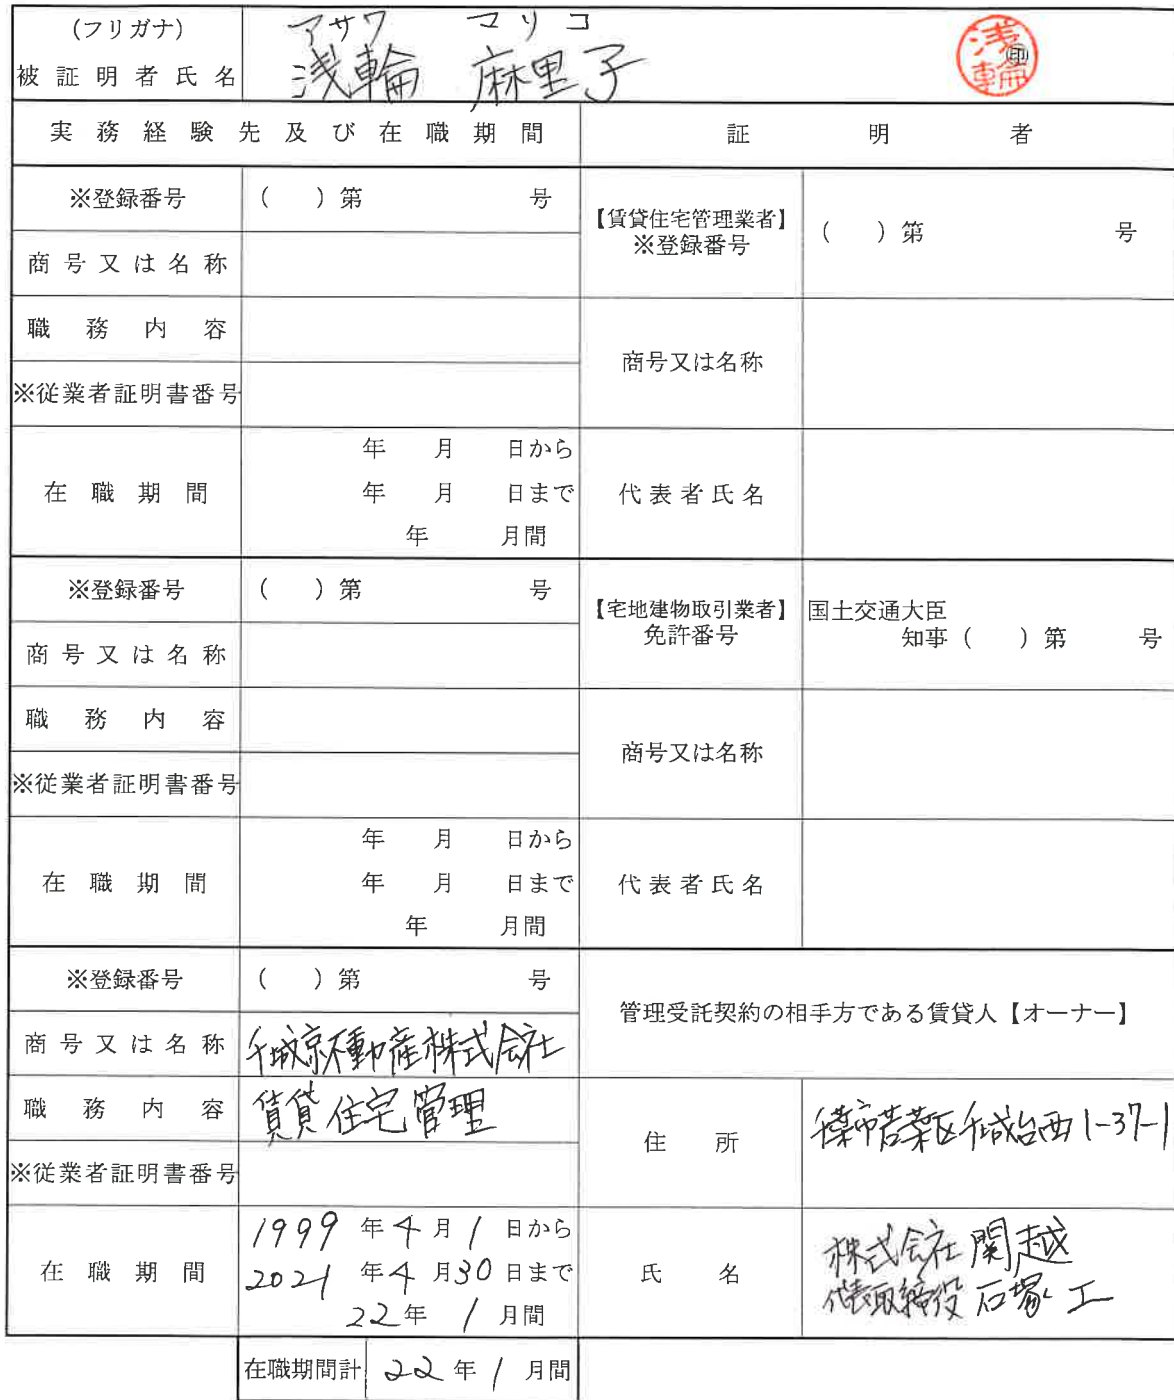 (フリガナ) アサワ マリコ
被証明者氏名 浅輪 麻里子 ㊞ 浅輪
実務経験先及び在職期間 証明者
※登録番号 ( )第 号
【賃貸住宅管理業者】
※登録番号 ( )第 号
商号又は名称
職務内容
商号又は名称
※従業者証明書番号
在職期間
年 月 日から
年 月 日まで
年 月間
代表者氏名
※登録番号 ( )第 号
【宅地建物取引業者】
免許番号
国土交通大臣
知事( )第 号
商号又は名称
職務内容
商号又は名称
※従業者証明書番号
在職期間
年 月 日から
年 月 日まで
年 月間
代表者氏名
※登録番号 ( )第 号
管理受託契約の相手方である賃貸人【オーナー】
商号又は名称 千城京不動産株式会社
職務内容 賃貸住宅管理
住所 千葉市若葉区千城台西1-37-1
※従業者証明書番号
在職期間
1999年4月1日から
2021年4月30日まで
22年1月間
氏名
株式会社関越
代表取締役 石塚 工
在職期間計 22年1月間